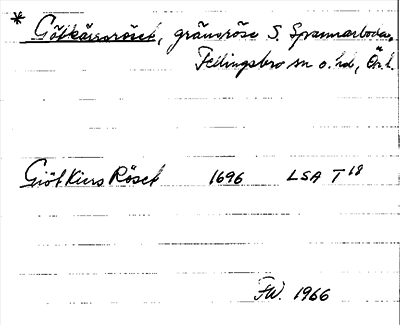 * Götkärrsröset, gränsröse S. Spannarboda,
Fellingsbro sn o. hd, Ör. l.
Giöt Kiers Röset 1696 LSA T 18
FW. 1966